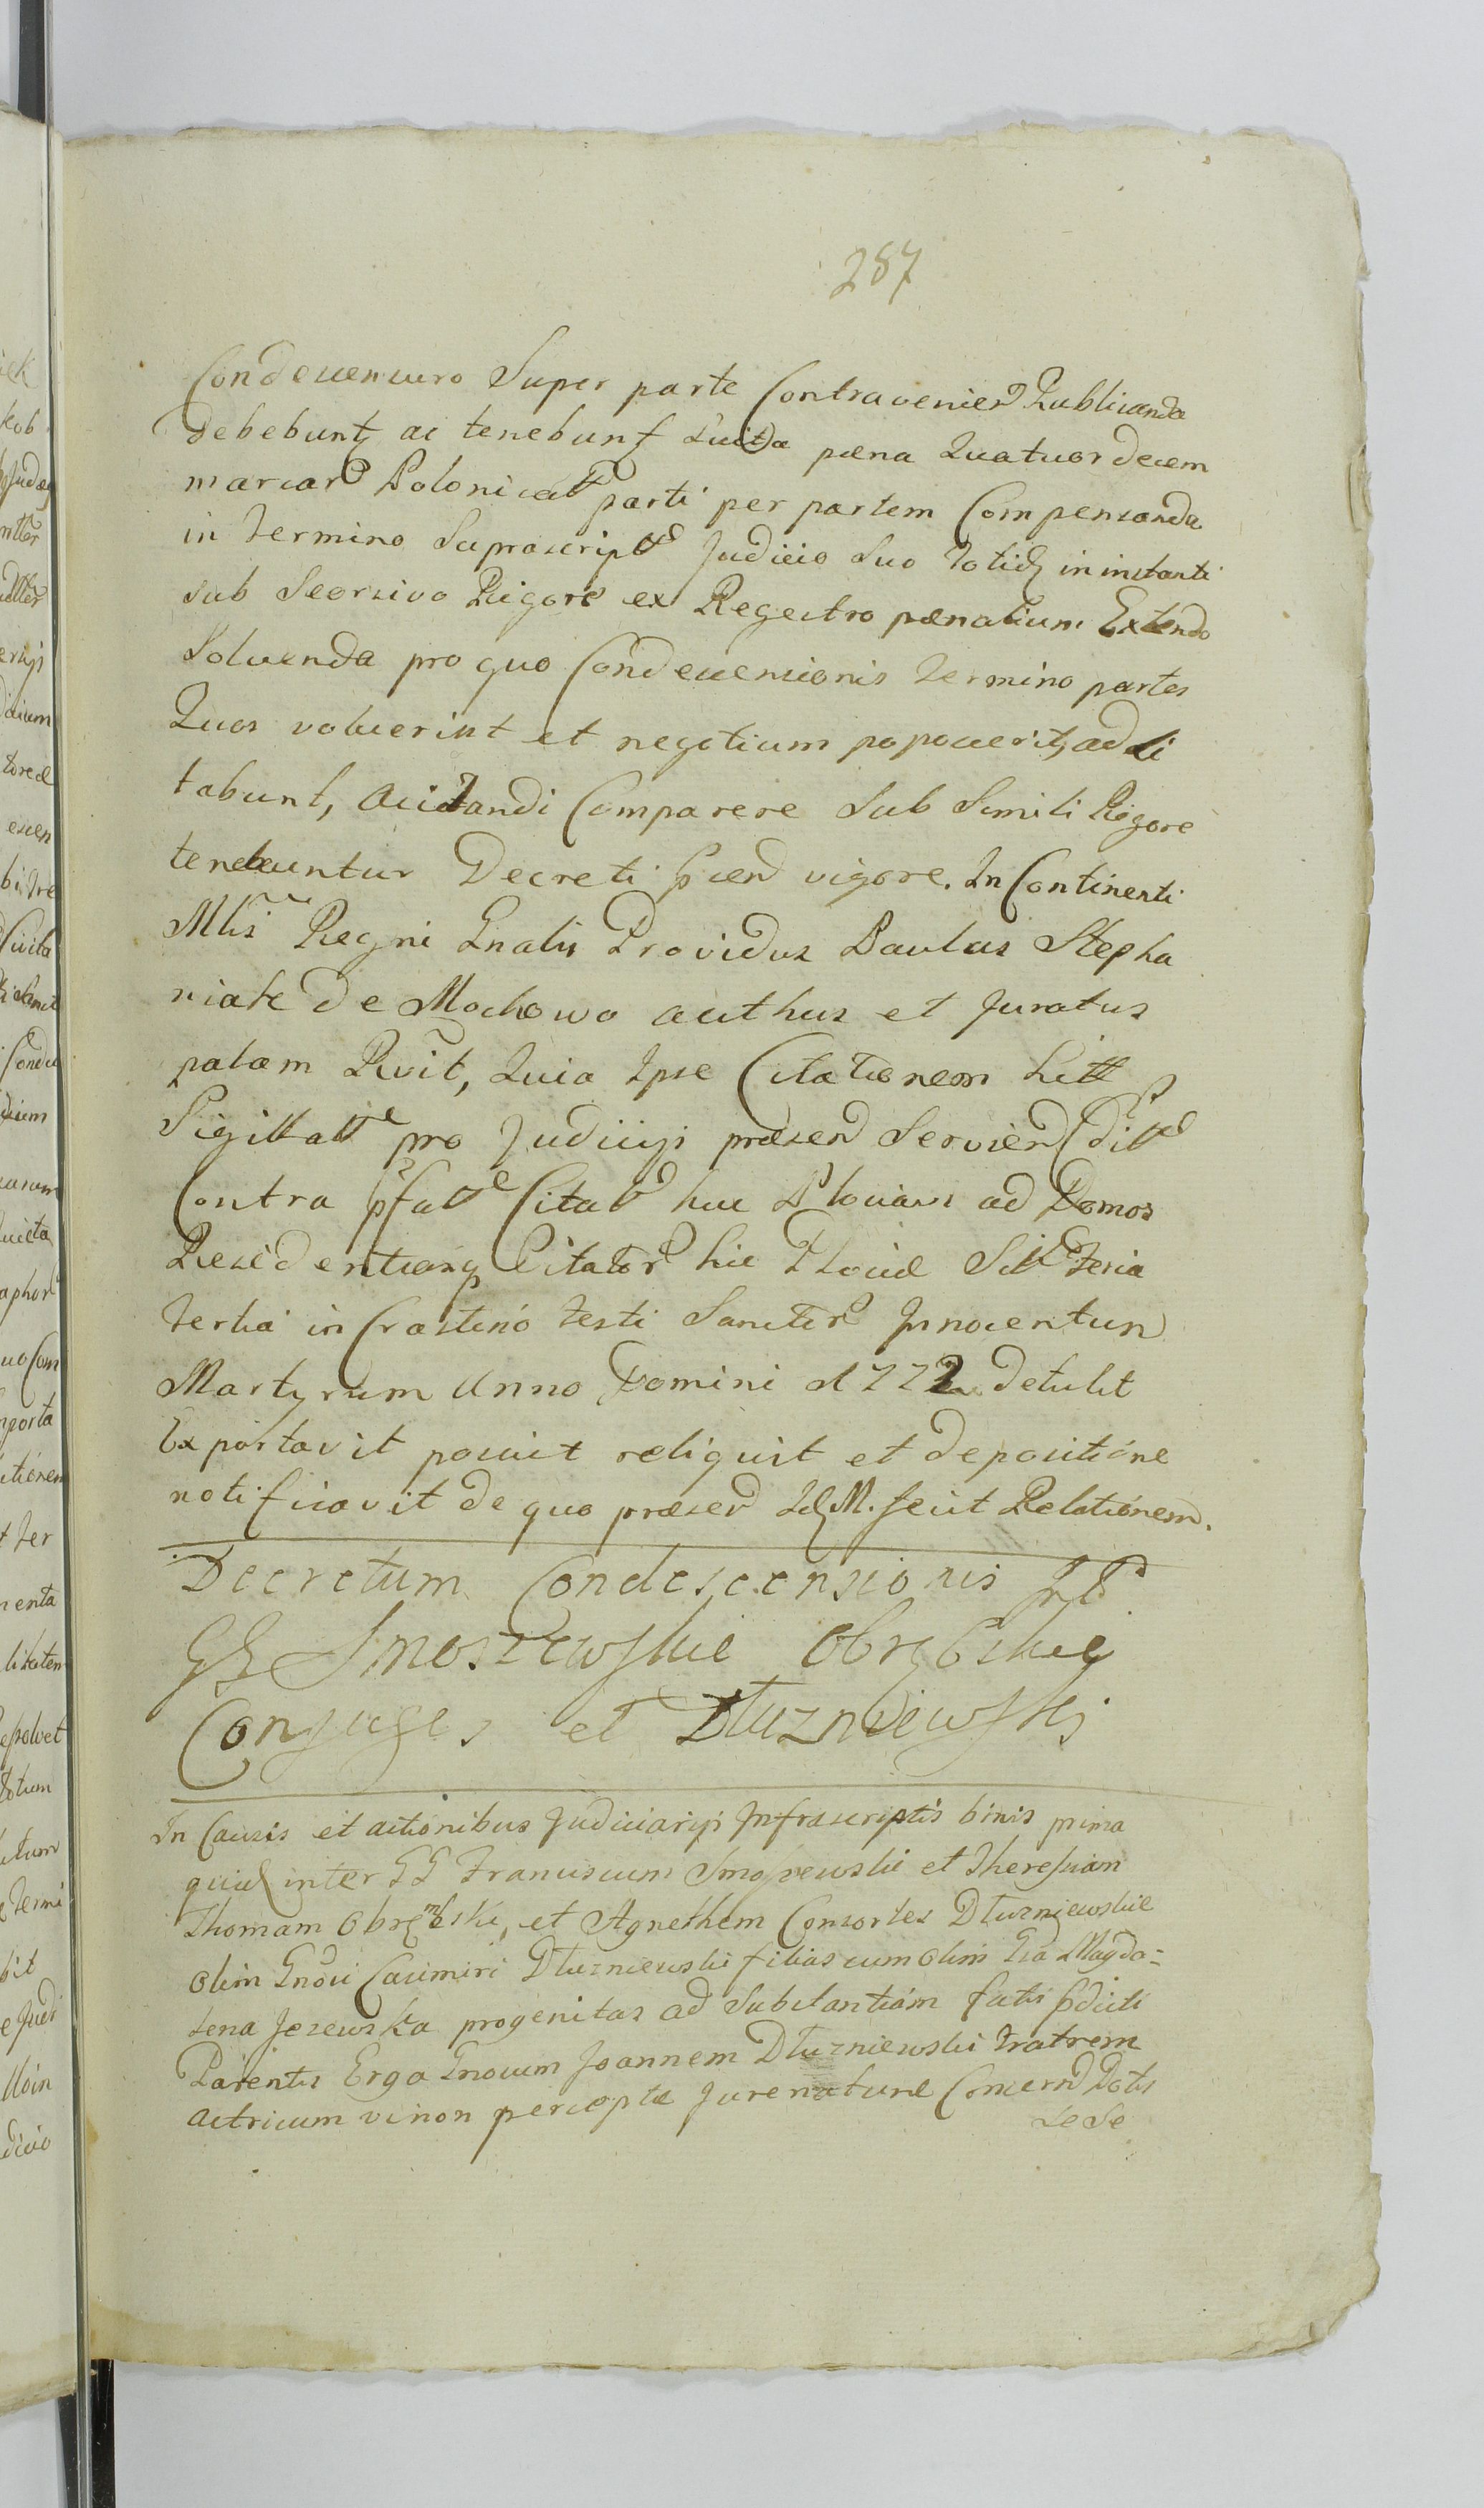 287
Condescensuro Super parte Contravenien Publicanda
debebunt ac tenebunt Luita pæna Quatuordecem
marcar Polonical parti per partem Compensanda
in termino Suprascript Judicio Suo totidē in instanti
sub Seorsivo Rigore ex Regestro pænalium Extendo
Solvenda pro quo Condescensionis termino partes
Quos voluerint et negotium poposcerit, adci
tabunt, Acitandi Comparere Sub Simili Rigore
tenebuntur Decreti pñen vigore. In Continenti
Mlis Regni Gnalis Providus Paulus Stepha
niak de Mochowo authus et Juratus
palam Rvit, Quia Ipse Citationem Litt
Sigillatt pro Judicijs præsen Servien Edit
Contra pfatt Citat huc Plociam ad Domos
Residentiasq Citator hic Plociæ Sitt Feria
tertia in Crastino Festi Sanctor Innocentun
Martyrum Anno Domini 1772 detulit
Exportavit posuit reliquit et depositione
notificavit de quo præsen Idē M. fecit Relationem.
Decretum Condescensionis Int
GG Smoszewskie Obrębskie
Conjuges et Dłuzniewskj
In Causis et actionibus Judiciarijs Infrascriptis binis prima
quidē inter GG Franciscum Smoszewski et Theressiam
Thomam Obrębski, et Agnethem Consortes Dłuzniewskie
olim Gnosi Casimiri Dłuzniewski filias cum olim Gsa Magda=
lena Jezewska progenitas ad Substantiam fatis pdicti
Parentis Erga Gnosum Joannem Dłuzniewski Fratrem
Actricum vi non percepte Jure naturæ Concern Dotis
sese